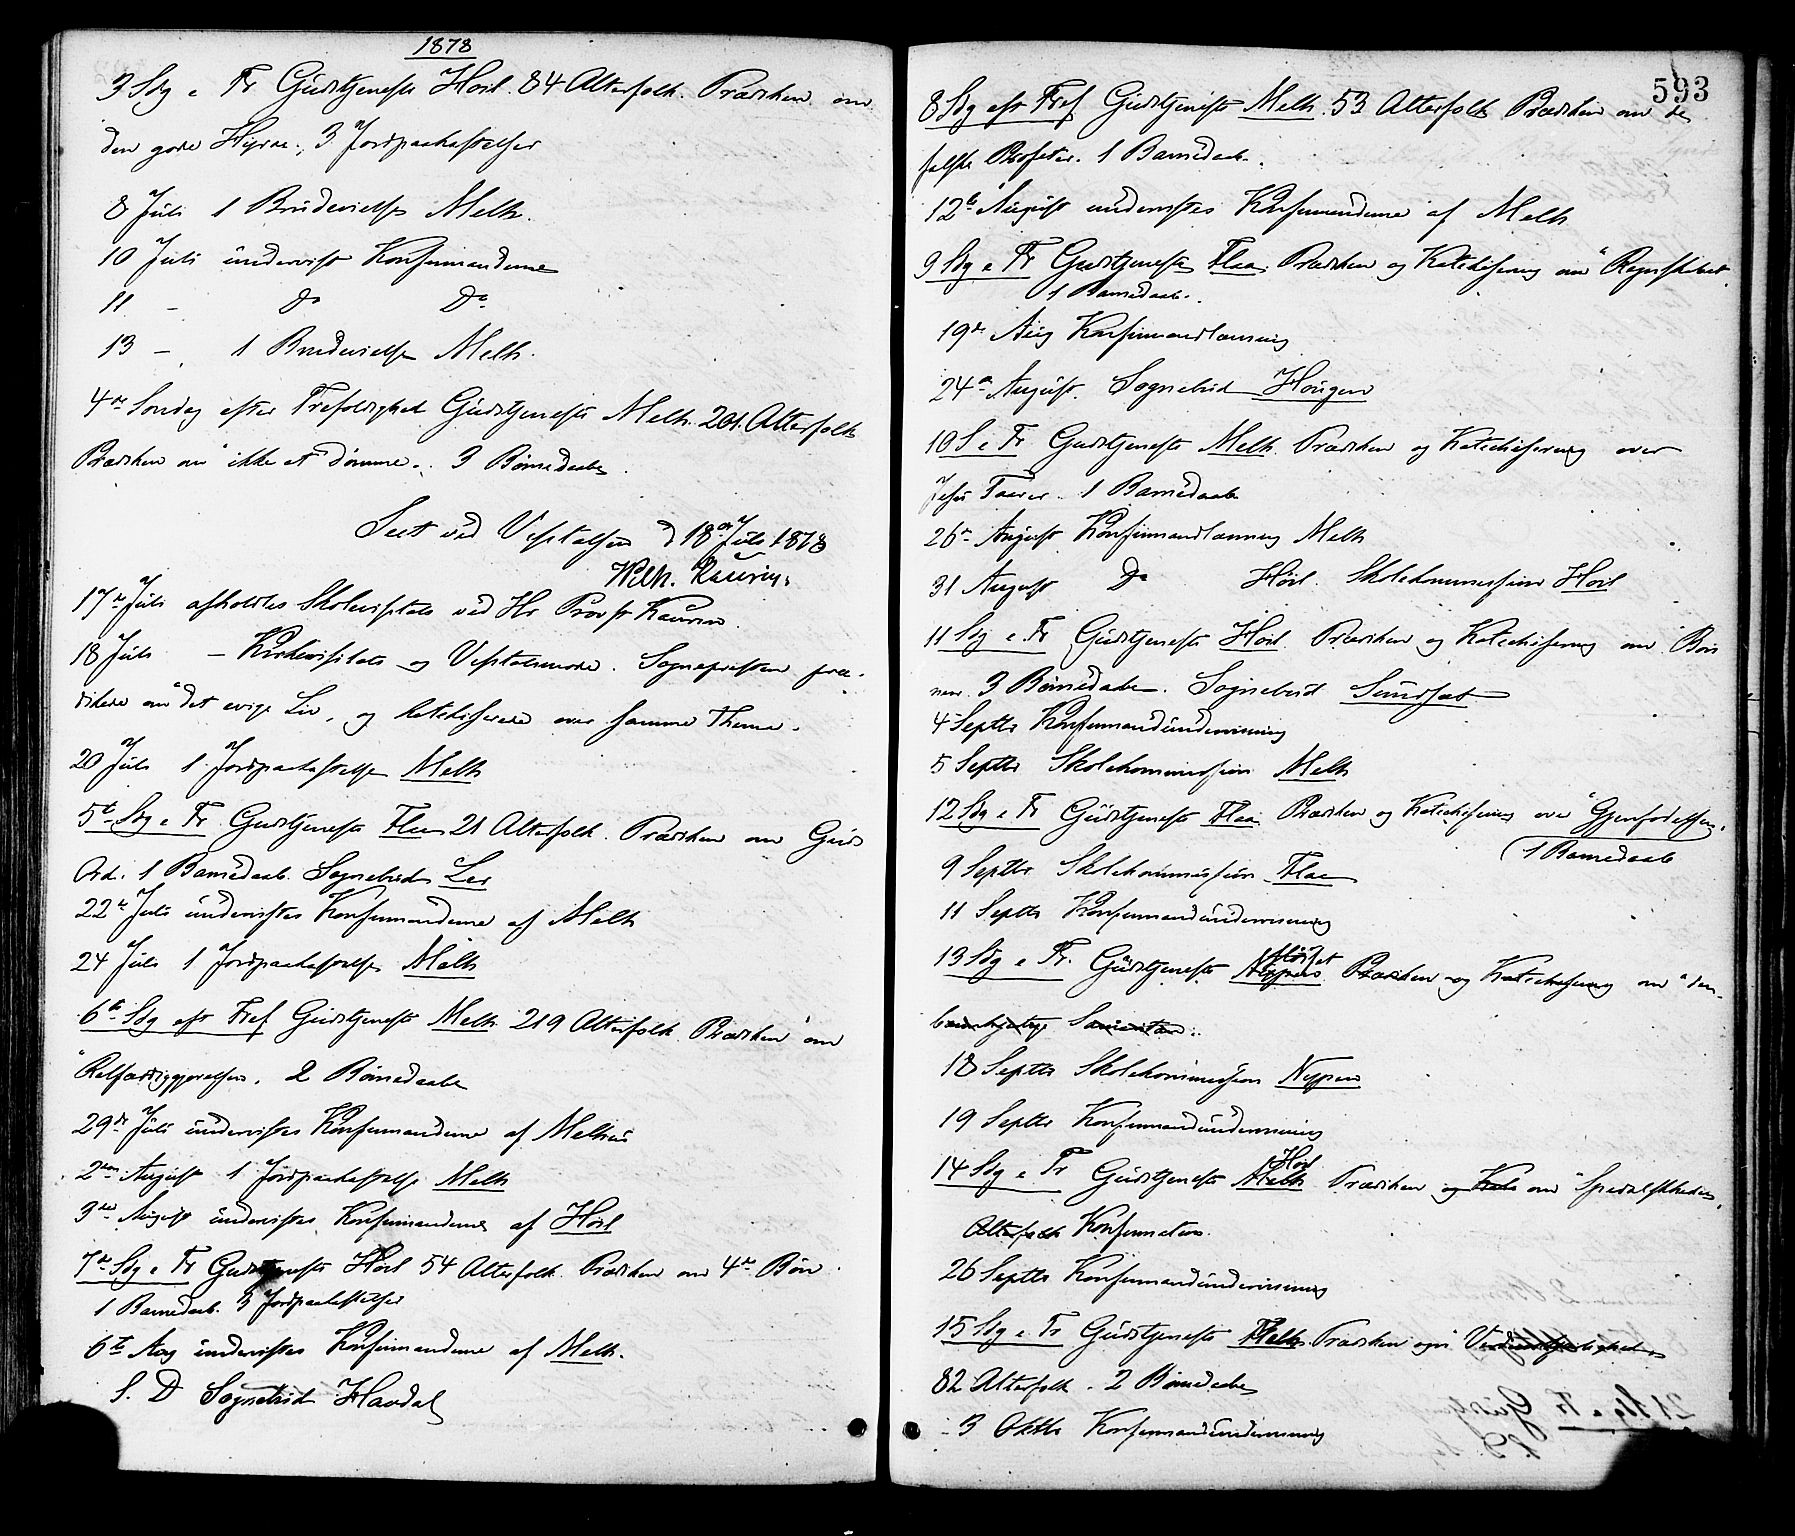 1878
3 Sdg e Tr Gudstjeneste Høil. 84 Alterfolk. Prædiken om
den gode Hyrde. 3 Jordpaakastelser
8 Juli 1 Brudevielse Melh.
10 Juli undervist Konfirmanderne
11 - do Do
13 - 1 Brudevielse Melh.
4de Søndag efter Trefoldighed Gudstjeneste Melh. 201 Alterfolk
Prædiken om "ikke at dømme". 3 Børnedaab
Seet ved Visitatsen d 18de Juli 1878
Wilh. Kaurin.
17de Juli afholdtes Skolevisitats ved Hr Provst Kaurin.
18 Juli - Kirkevisitats og Visitatsmøde. Sognepræsten præ-
dikede om "det evige Liv", og katechiserede over samme Thema.
20 Juli 1 Jordpaakastelse Melh
5te Sdg e Tr Gudstjeneste Flaa 21 Alterfolk. Prædiken om Guds
Ord. 1 Barnedaab. Sognebud Ler
22de Juli undervistes Konfirmanderne af Melh
24 Juli 1 Jordpaakastelse Melh
6te Sdg eft Tref Gudstjeneste Melh 219 Alterfolk. Prædiken om
"Retfærdiggjørelsen". 2 Børnedaab
29de Juli undervistes Konfirmanderne af Melhus
2den August 1 Jordpaakastelse Melh
3die August undervistes Konfirmanderne af Høil
7de Sdg e Tr Gudstjeneste Høil 54 Alterfolk. Prædiken om 4de Bøn.
1 Barnedaab. 3 Jordpaakastelser
6te Aug undervistes Konfirmanderne af Melh.
S. D Sognebud Havdal
593
8 Sdg eft Tref Gudstjeneste Melh. 53 Alterfolk Prædiken om de
falske Profeter. 1 Barnedaab.
12te August undervistes Konfirmanderne af Melh
9 Sdg e Tr Gudstjeneste Flaa. Prædiken og Katechisering om "Regnskabet"
1 Barnedaab.
19de Aug Konfirmandlæsning
24de August. Sognebud Hougen
10 S e Tr Gudstjeneste Melh. Prædiken og Katechisering over
Jesu Taarer. 1 Barnedaab
26de August Konfirmandlæsning Melh
31 August Do Høil. Skolekommission Høil
11 Sdg e Tr Gudstjeneste Høil. Prædiken og Katechisering om Bøn
nen. 3 Børnedaab. Sognebud Sundset
4 Septbr Konfirmandundervisning
5 Septbr Skolekommission Melh
12 Sdg e Tr Gudstjeneste Flaa. Prædiken og Katechisering over "Gjenfødelsen".
1 Barnedaab
9 Septbr Skolekommission Flaa
11 Septbr Konfirmandundervisning
13 Sdg e Tr. Gudstjeneste Nypen Prædiken og Katechisering om "den
barmhjertige Samaritan".
18 Septbr Skolekommission Nypen
19 Septbr Konfirmandundervisning
14 Sdg e Tr Gudstjeneste Melh Høil Prædiken og Kat om Spedalskheden
Alterfolk Konfirmation
26 Septbr Konfirmandundervisning
15 Sdg e Tr Gudstjeneste Melh. Prædiken
82 Alterfolk. 2 Børnedaab
3 Oktbr Konfirmandundervisning